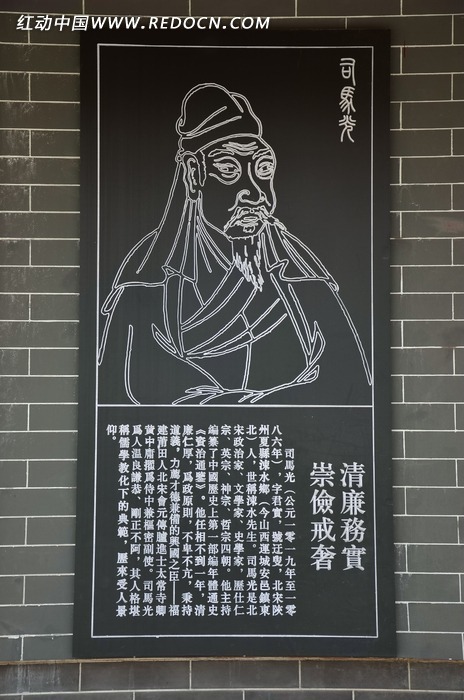 红动中国 WWW.REDOCN.COM
司馬光
清廉務實
崇儉戒奢
司馬光（公元一〇一九年至一〇
八六年），字君實，號迂叟，北宋陝
州夏縣涑水鄉（今山西運城安邑鎮東
北）人，世稱涑水先生。司馬光是北
宋政治家、文學家、史學家，歷仕仁
宗、英宗、神宗、哲宗四朝。他主持
編纂了中國歷史上第一部編年體通史
《資治通鑒》。他任相不到一年，清
廉仁厚，爲政原則，不卑不亢，秉持
道義，力薦才德兼備的興國之臣——福
建莆田人北宋會元傳臚進士太常寺卿
黃中庸擢爲侍中兼樞密副使。司馬光
爲人温良謙恭、剛正不阿，其人格堪
稱儒學教化下的典範，歷來受人景
仰。